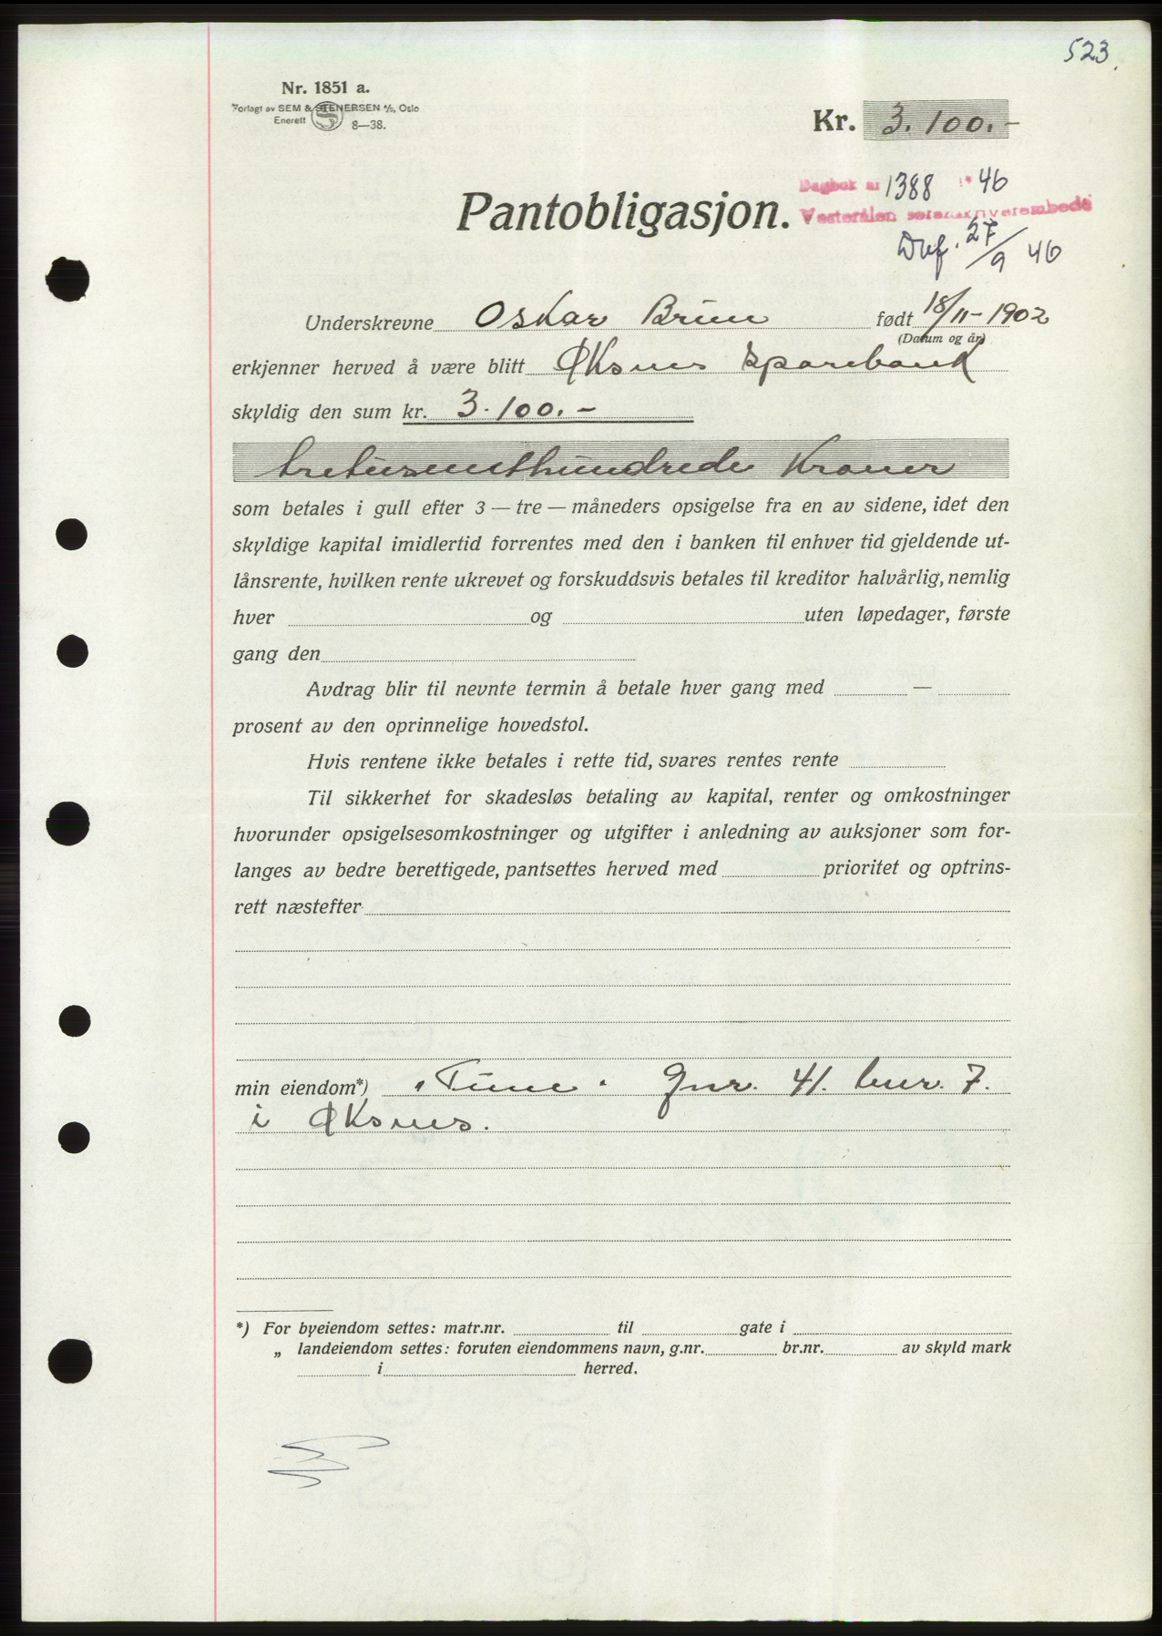 523.
Nr. 1851 a.
Forlagt av SEM & STENERSEN A/S, Oslo
Enerett
8—38.
Kr. 3.100.-
Dagbok nr 1388 19 46
Pantobligasjon.
Vesterålen sorenskriverembede
27/9 46
Underskrevne Oskar Brun født 18/11-1902
(Datum og år)
erkjenner herved å være blitt Øksnes Sparebank
skyldig den sum kr. 3.100.-
tretusenethundrede Kroner
som betales i gull efter 3 — tre — måneders opsigelse fra en av sidene, idet den
skyldige kapital imidlertid forrentes med den i banken til enhver tid gjeldende ut-
lånsrente, hvilken rente ukrevet og forskuddsvis betales til kreditor halvårlig, nemlig
hver og uten løpedager, første
gang den
Avdrag blir til nevnte termin å betale hver gang med —
prosent av den oprinnelige hovedstol.
Hvis rentene ikke betales i rette tid, svares rentes rente
Til sikkerhet for skadesløs betaling av kapital, renter og omkostninger
hvorunder opsigelsesomkostninger og utgifter i anledning av auksjoner som for-
langes av bedre berettigede, pantsettes herved med prioritet og optrins-
rett næstefter
min eiendom*) "Tune" Gnr. 41. bnr. 7.
i Øksnes.
*) For byeiendom settes: matr.nr. til gate i
„ landeiendom settes: foruten eiendommens navn, g.nr. br.nr. av skyld mark
i herred.